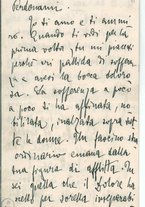 perdonami.
Io ti amo e ti ammi-
ro. Quando ti vidi per la
prima volta, tu mi piacesti
perché eri pallida di soffe
e avevi la bocca doloro-
sa. La sofferenza a poco
a poco ti ha affinata, no-
bilitata, inalzata sopra tut-
te le donne. Un fascino stra-
ordinario emana dalla
tua figura di afflitta. Tu
sei quella che il dolore ha